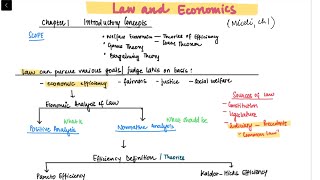 Law and Economics
Chapter 1 Introductory Concepts (Miceli, ch 1)
SCOPE
• Welfare Economics → Theories of Efficiency
• Game Theory • Coase Theorem
• Bargaining Theory
Law can pursue various goals / judge laws on basis:
- economic efficiency - fairness - justice - social welfare
Economic Analysis of Law
Sources of Law
- Constitution
- Legislature
- Judiciary - Precedents
"Common Law"
What is
What should be
Positive Analysis
Normative Analysis
Efficiency Definition / Theories
Pareto Efficiency
Kaldor-Hicks Efficiency